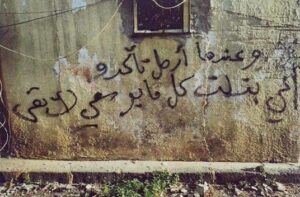 وعندما أرحل تأكدو
أنني بذلت كل ما بوسعي لأبقى